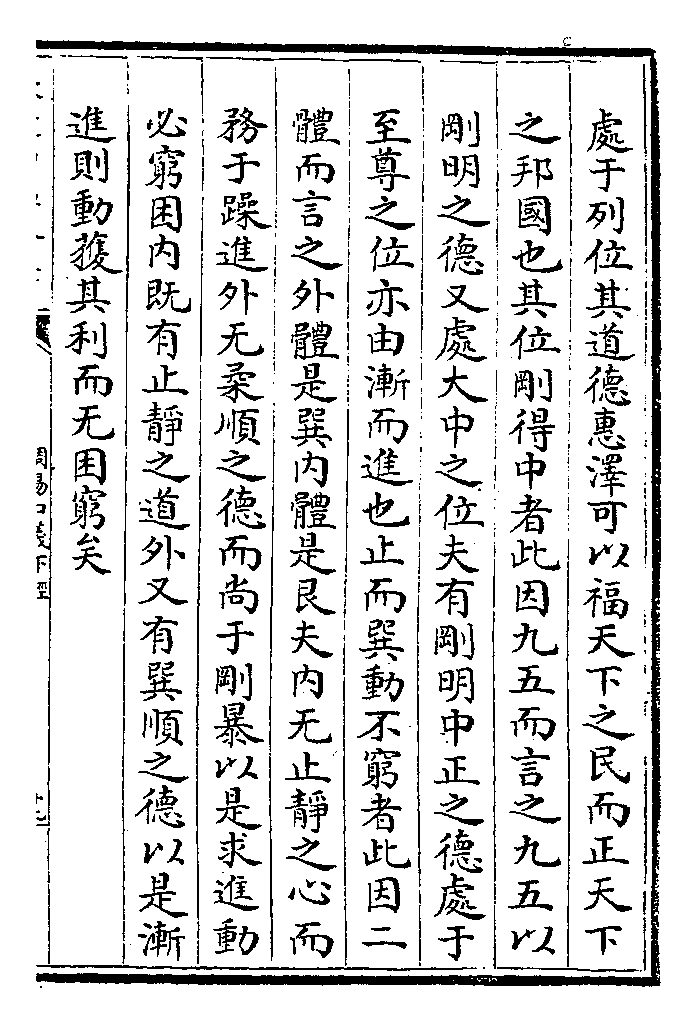 處于列位其道德惠澤可以福天下之民而正天下
之邦國也其位剛得中者此因九五而言之九五以
剛明之德又處大中之位夫有剛明中正之德處于
至尊之位亦由漸而進也止而巽動不窮者此因二
體而言之外體是巽内體是艮夫内无止靜之心而
務于躁進外无柔順之德而尚于剛暴以是求進動
必窮困内既有止靜之道外又有巽順之德以是漸
進則動獲其利而无困窮矣
周易口義下經